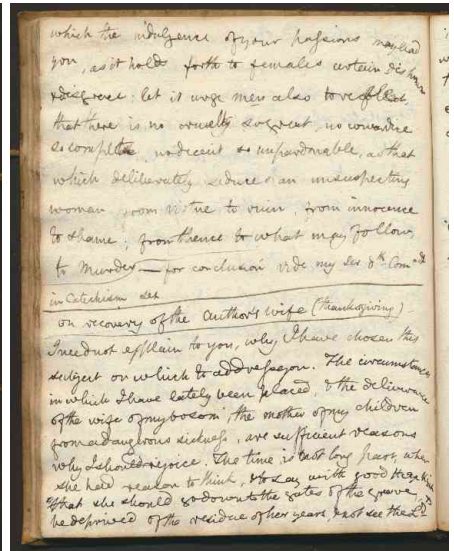 which the indulgence of your passions may lead
you, as it holds forth to females certain dishonor
& disgrace; let it urge men also to reflect,
that there is no cruelty so great, no cowardice
so complete, no deceit so unpardonable, as that
which deliberately seduces an unsuspecting
woman from virtue to ruin, from innocence
to shame; from thence to what may follow
to Murder — for conclusion vide my Ser 8th Com
in Catechism Ser
on recovery of the author's wife (thanksgiving)
I need not explain to you, why I have chosen this
subject on which to address you. The circumstances
in which I have lately been placed, & the deliverance
of the wife of my bosom, the mother of my children
from a dangerous sickness, are sufficient reasons
why I should rejoice. The time is not long past, when
she had reason to think, & to say with good Hezekiah
"that she should go down to the gates of the grave, &
be deprived of the residue of her years, & not see the